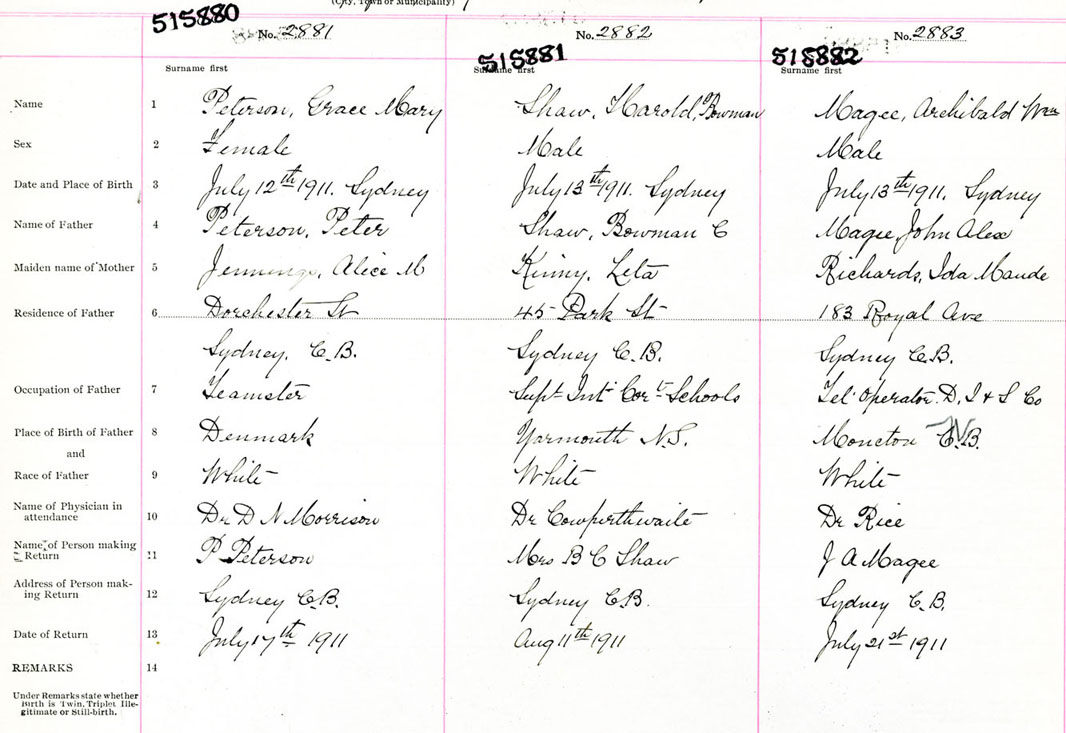 (City, Town or Municipality)
515880 No. 2881
515881 No. 2882
515882 No. 2883
Surname first Surname first Surname first
Name 1 Peterson, Grace Mary Shaw, Harold, Bowman Magee, Archibald Wm
Sex 2 Female Male Male
Date and Place of Birth 3 July 12th 1911. Sydney July 13th 1911. Sydney July 13th 1911, Sydney
Name of Father 4 Peterson, Peter Shaw, Bowman C Magee, John Alex
Maiden name of Mother 5 Jennings, Alice M Kinny, Leta Richards, Ida Maude
Residence of Father 6 Dorchester St 45 Park St 183 Royal Ave
Sydney, C.B. Sydney C.B. Sydney C.B.
Occupation of Father 7 Teamster Supt Int Cort Schools Tel Operator. D. I & S Co
Place of Birth of Father 8 Denmark Yarmouth N.S. Moncton N.B.
and
Race of Father 9 White White White
Name of Physician in
attendance 10 Dr D N Morrison Dr Cowperthwaite Dr Rice
Name of Person making
Return 11 P Peterson Mrs B C Shaw J A Magee
Address of Person mak-
ing Return 12 Sydney C.B. Sydney C.B. Sydney C.B.
Date of Return 13 July 17th 1911 Aug 11th 1911 July 21st 1911
REMARKS 14
Under Remarks state whether
Birth is Twin, Triplet Ille-
gitimate or Still-birth.